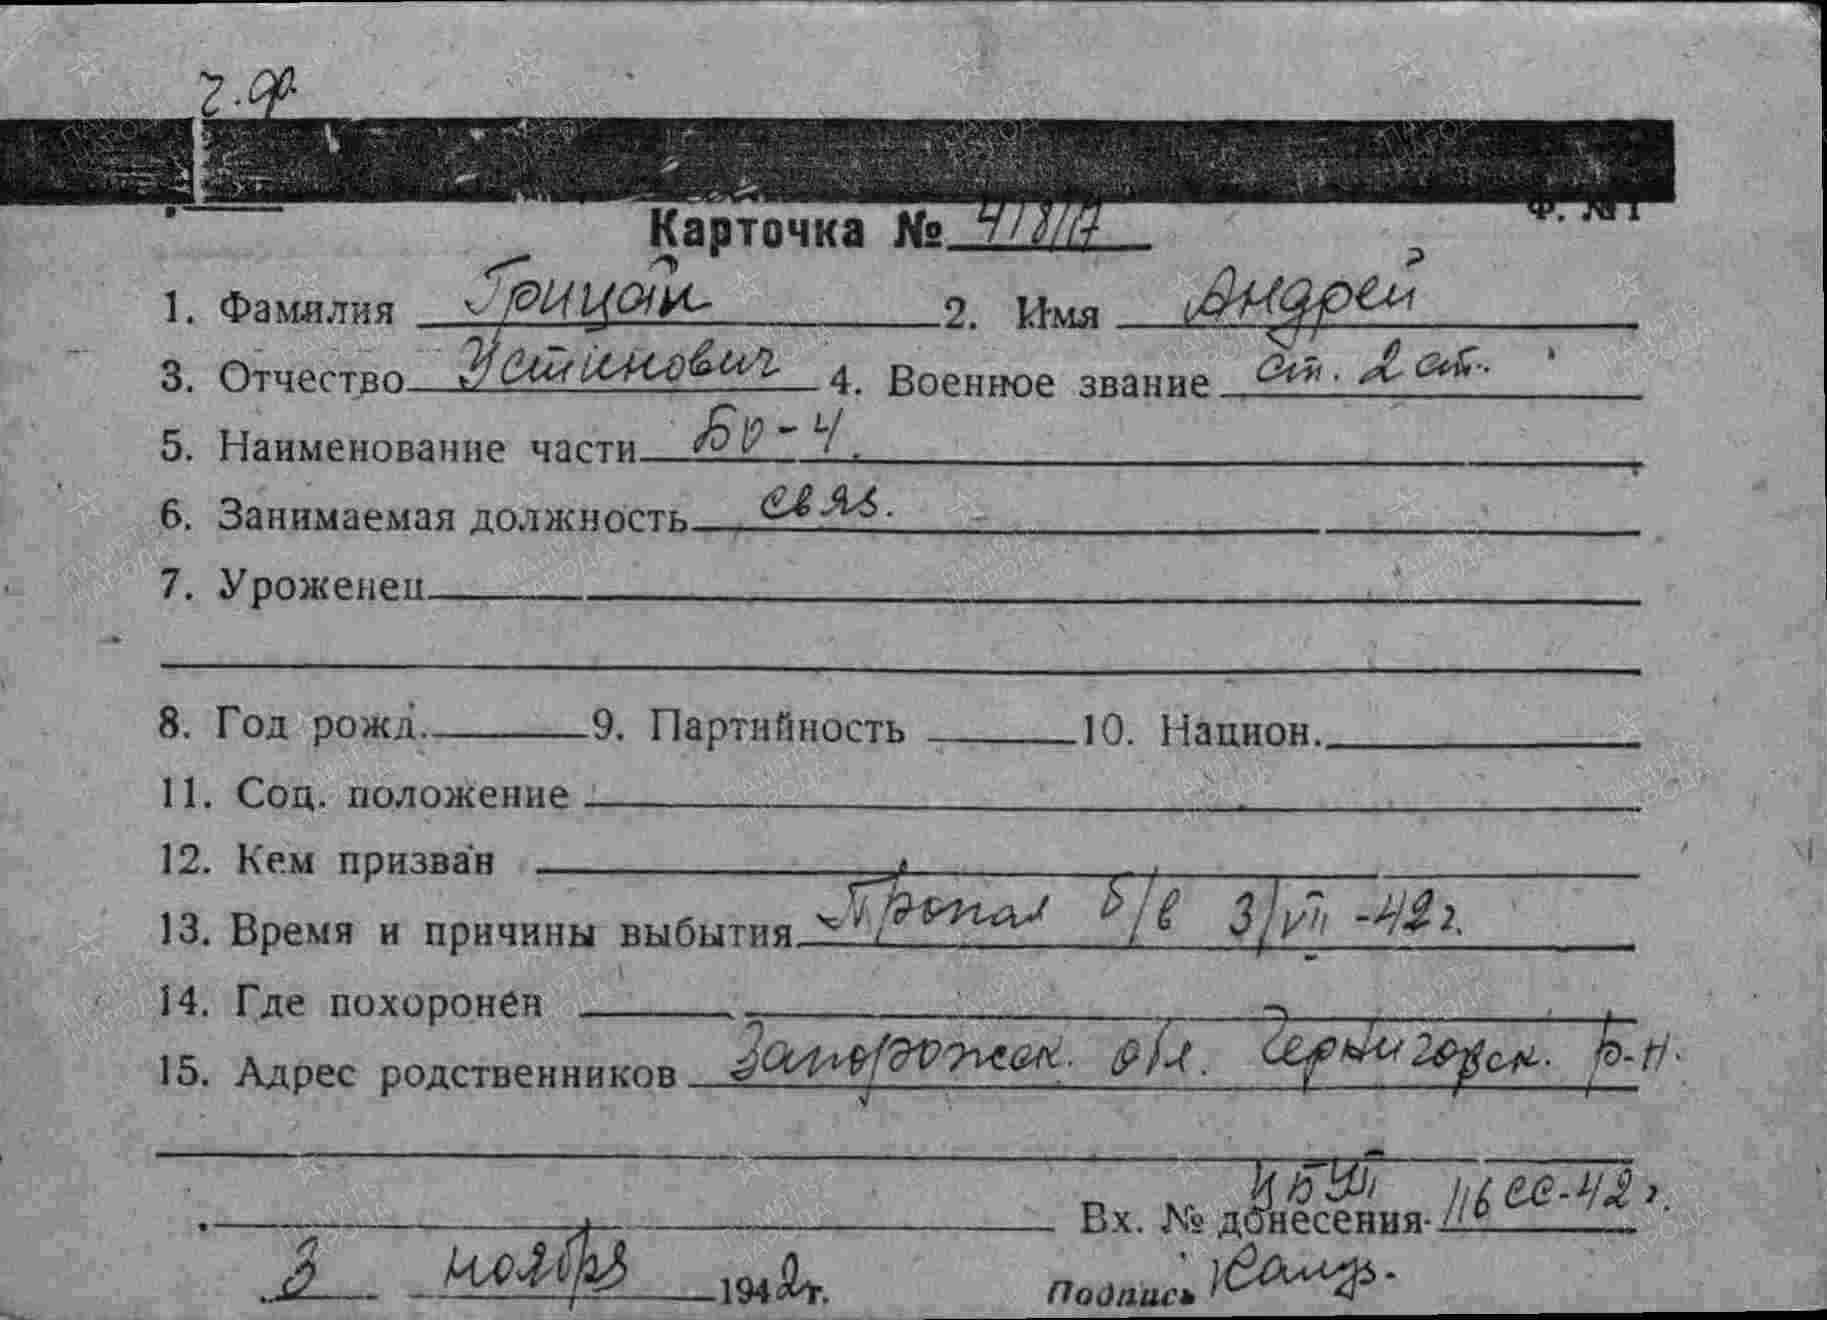 ч.ф.
Ф. № 1
Карточка № 41817
1. Фамилия Грицай 2. Имя Андрей
3. Отчество Устинович 4. Военное звание ст. 2 ст.
5. Наименование части БО-4.
6. Занимаемая должность связ.
7. Уроженец
8. Год рожд. 9. Партийность 10. Национ.
11. Соц. положение
12. Кем призван
13. Время и причины выбытия Пропал б/в 3/VII-42г.
14. Где похоронен
15. Адрес родственников Запорожск. обл. Черниговск. р-н.
Вх. № донесения 116сс-42г.
3 ноября 1942г. Подпись